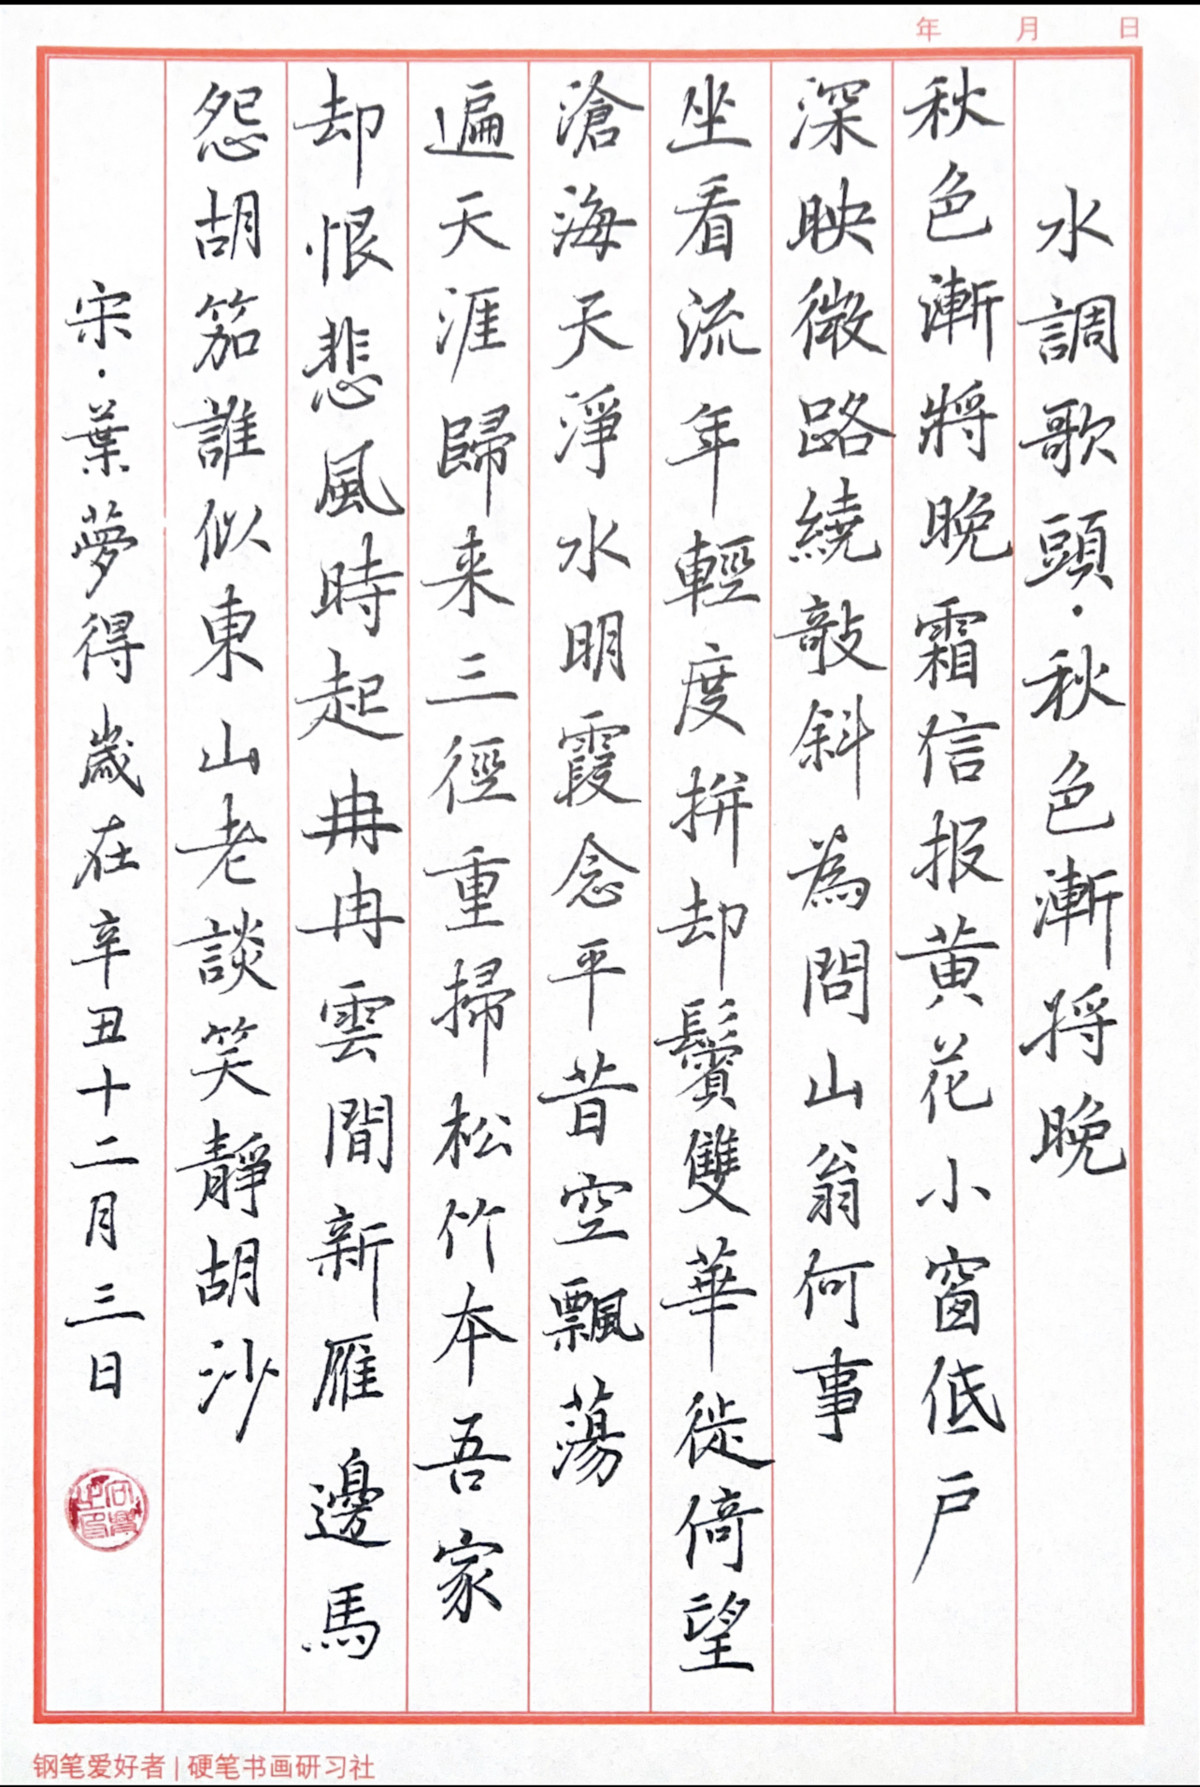 年 月 日
水調歌頭·秋色漸将晚
秋色漸將晚霜信报黄花小窗低户
深映微路繞敧斜為問山翁何事
坐看流年輕度拚却鬢雙華徙倚望
滄海天淨水明霞念平昔空飄蕩
遍天涯歸来三徑重掃松竹本吾家
却恨悲風時起冉冉雲間新雁邊馬
怨胡笳誰似東山老談笑靜胡沙
宋·葉夢得歲在辛丑十二月三日
钢笔爱好者 | 硬笔书画研习社